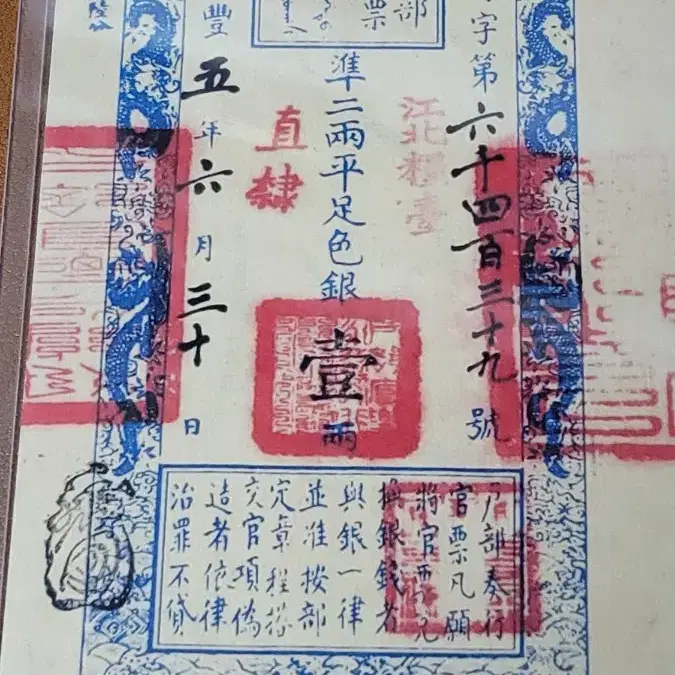 部
票
字第六千四百三十九號
江北糧臺
準二兩平足色銀壹兩
直隸
豐五年六月三十日
戶部奏行
官票凡願
將官票兌
換銀錢者
與銀一律
並准按部
定章程搭
交官項偽
造者依律
治罪不貸